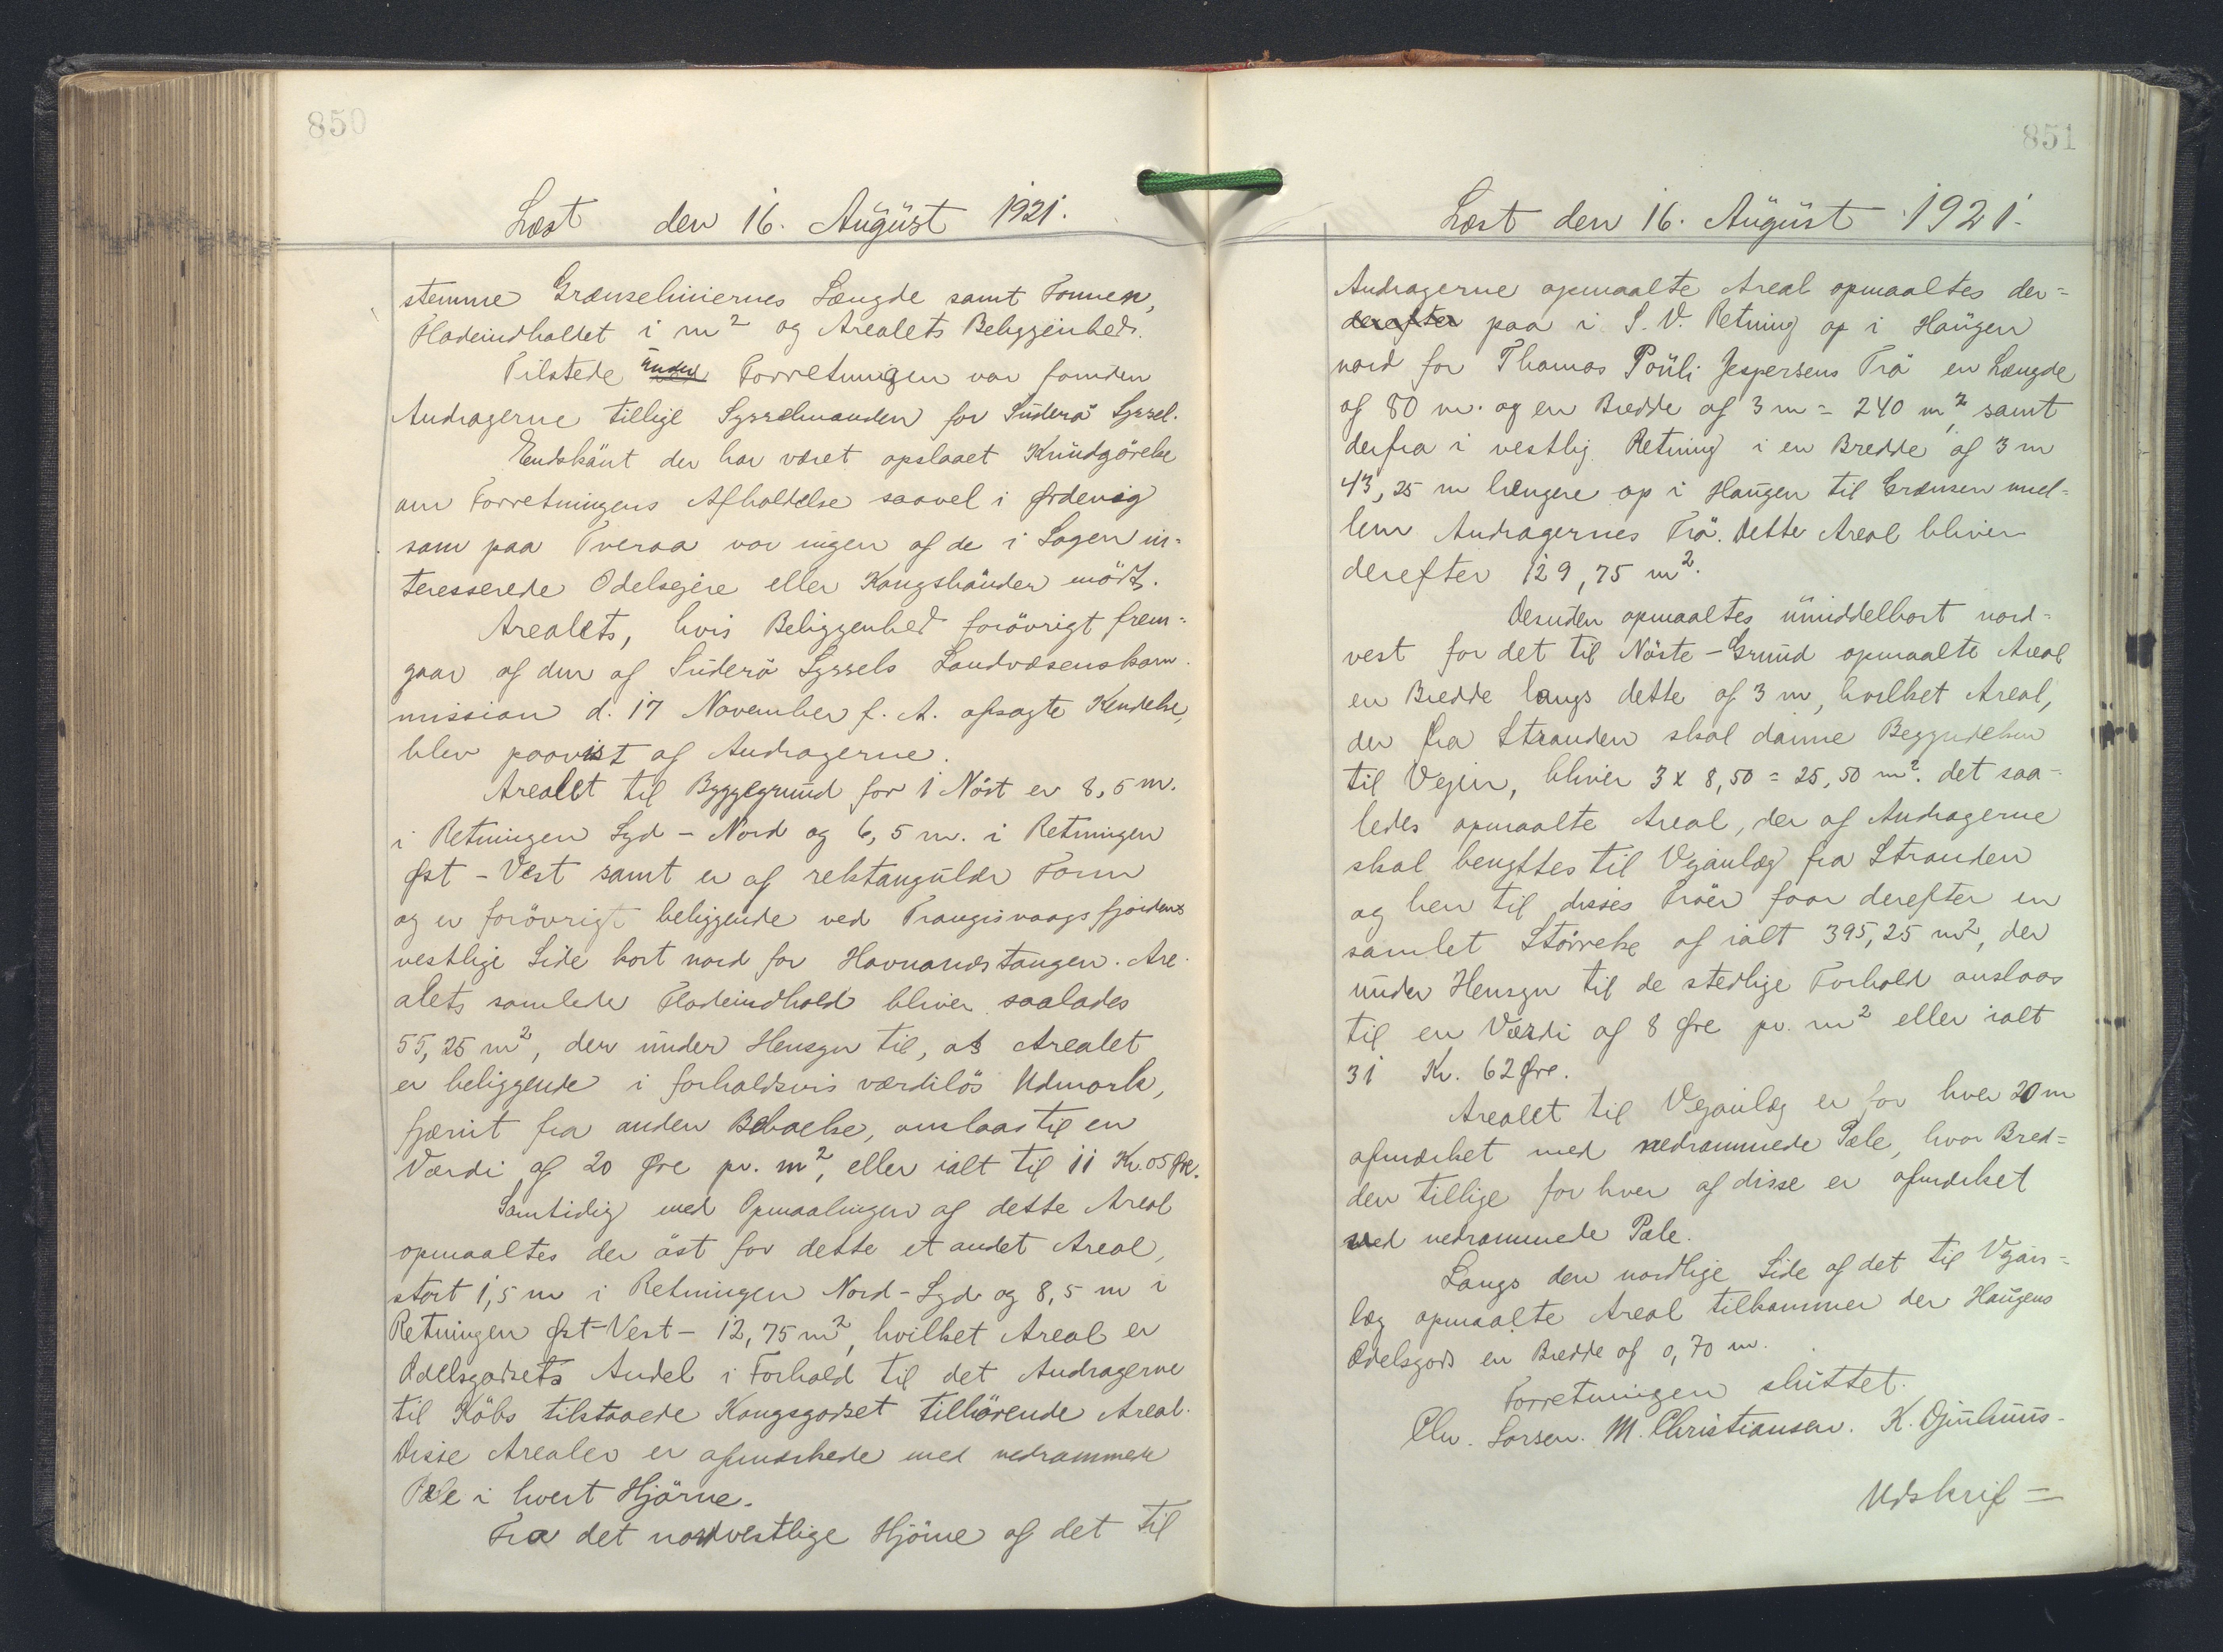 850
Læst den 16. August 1921.
stemme Grænseliniernes Længde samt Formen,
Fladeindholdet i m² og Arealets Beliggenhed.
Tilstede under Forretningen var foruden
Andragerne tillige Sysselmanden for Suderö Syssel.
Endskönt der har været opslaaet Kundgörelse
om Forretningens Afholdelse saavel i Ørdevig
som paa Tveraa var ingen af de i Sagen in-
teresserede Odelsejere eller Kongsbönder mödt.
Arealets, hvis Beliggenhed forövrigt frem-
gaar af den af Suderö Syssels Landvæsenskom-
mission d. 17 November f. A. afsagte Kendelse,
blev paavist af Andragerne.
Arealet til Byggegrund for 1 Nöst er 8,5 m.
i Retningen Syd - Nord og 6,5 m. i Retningen
Øst - Vest samt er af rektangulær Form
og er forövrigt beliggende ved Trangisvaagsfjordens
vestlige Side kort nord for Havnarnstangen. Are-
alets samlede Fladeindhold bliver saalades
55,25 m², der under Hensyn til, at Arealet
er beliggende i forholdsvis værdilös Udmark,
fjærnt fra anden Beboelse, anslaas til en
Værdi af 20 Øre pr. m², eller ialt til 11 Kr. 05 Øre.
Samtidig med Opmaalingen af dette Areal
opmaaltes der öst for dette et andet Areal,
stort 1,5 m i Retningen Nord - Syd og 8,5 m i
Retningen Øst - Vest - 12,75 m², hvilket Areal er
Odelsgodsets Andel i Forhold til det Andragerne
til Köbs tilstaaede Kongsgodset tilhörende Areal.
Disse Arealer er afmærkede med nedrammede
Pæle i hvert Hjörne.
Fra det nordvestlige Hjörne af det til
851
Læst den 16. August 1921.
Andragerne opmaalte Areal opmaaltes der=
derefter paa i S. V. Retning op i Haugen
nord for Thomas Pouli Jespersens Trö en Længde
af 80 m. og en Bredde af 3 m = 240 m², samt
derfra i vestlig Retning i en Bredde af 3 m
43,25 m længere op i Haugen til Grænsen mel=
lem Andragernes Trö. Dette Areal bliver
derefter 129,75 m².
Desuden opmaaltes umiddelbart nord=
vest for det til Nöste - Grund opmaalte Areal
en Bredde langs dette af 3 m, hvilket Areal,
der fra Stranden skal danne Begyndelsen
til Vejen, bliver 3 x 8,50 = 25,50 m². det saa-
ledes opmaalte Areal, der af Andragerne
skal benyttes til Vejanlæg fra Stranden
og hen til disses Tröer faar derefter en
samlet Störrelse af ialt 395,25 m², der
under Hensyn til de stedlige Forhold anslaas
til en Værdi af 8 Øre pr. m² eller ialt
31 Kr. 62 Øre.
Arealet til Vejanlæg er for hver 20 m
afmærket med nedrammede Pæle, hvor Bred=
den tillige for hver af disse er afmærket
med nedrammede Pæle.
Langs den nordlige Side af det til Vejan=
læg opmaalte Areal tilkommer der Haugens
Odelsgods en Bredde af 0,70 m.
Forretningen sluttet.
Chr. Larsen. M. Christiansen. K. Djurhuus.
Udskrif =